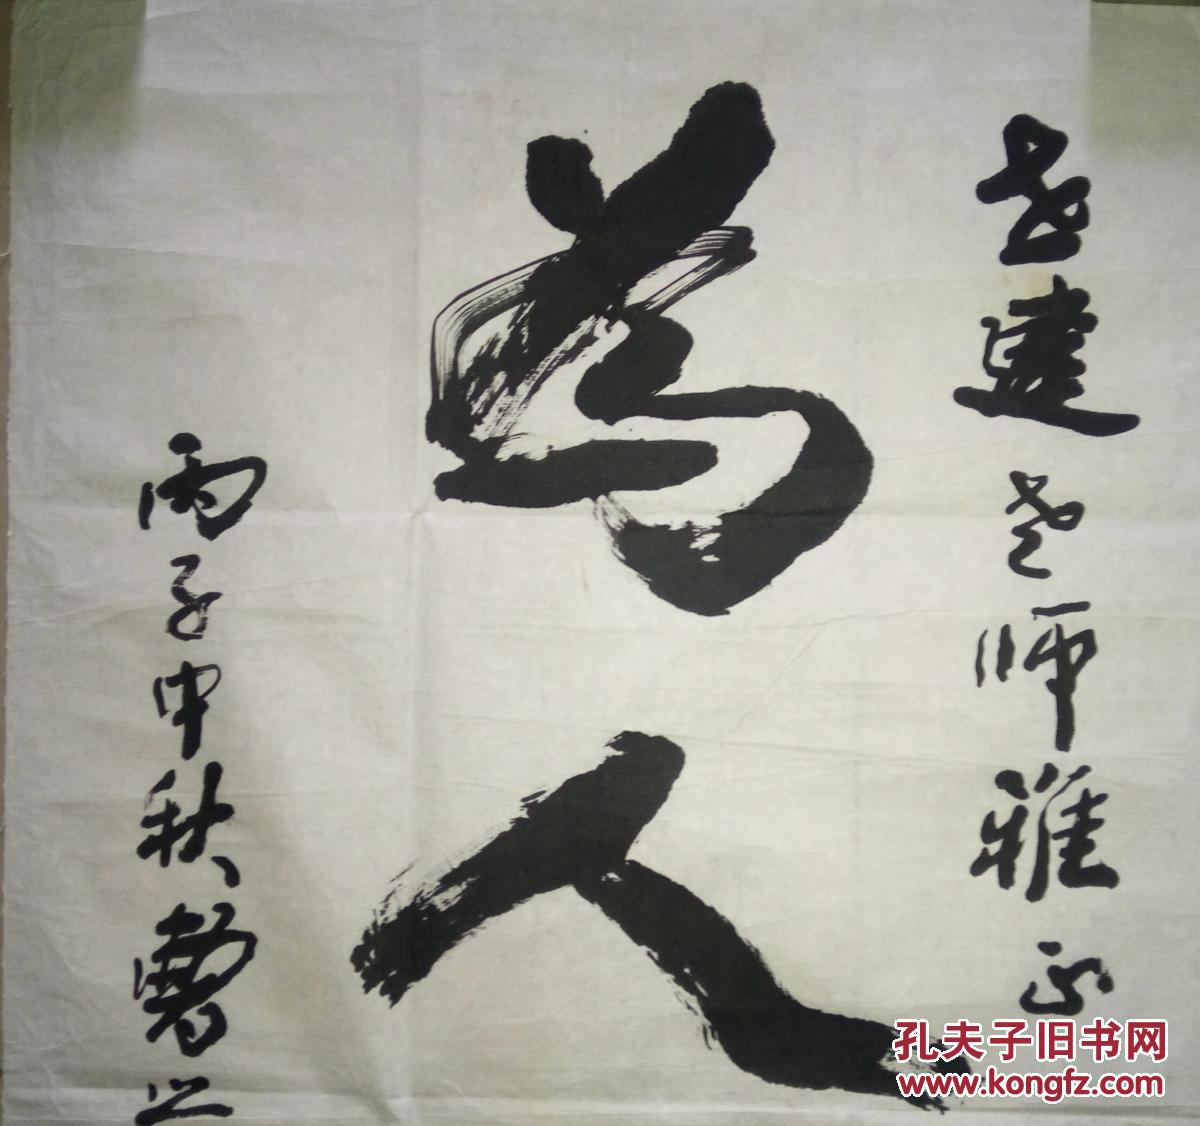 老师雅正
为人
丙子中秋
孔夫子旧书网
www.kongfz.com